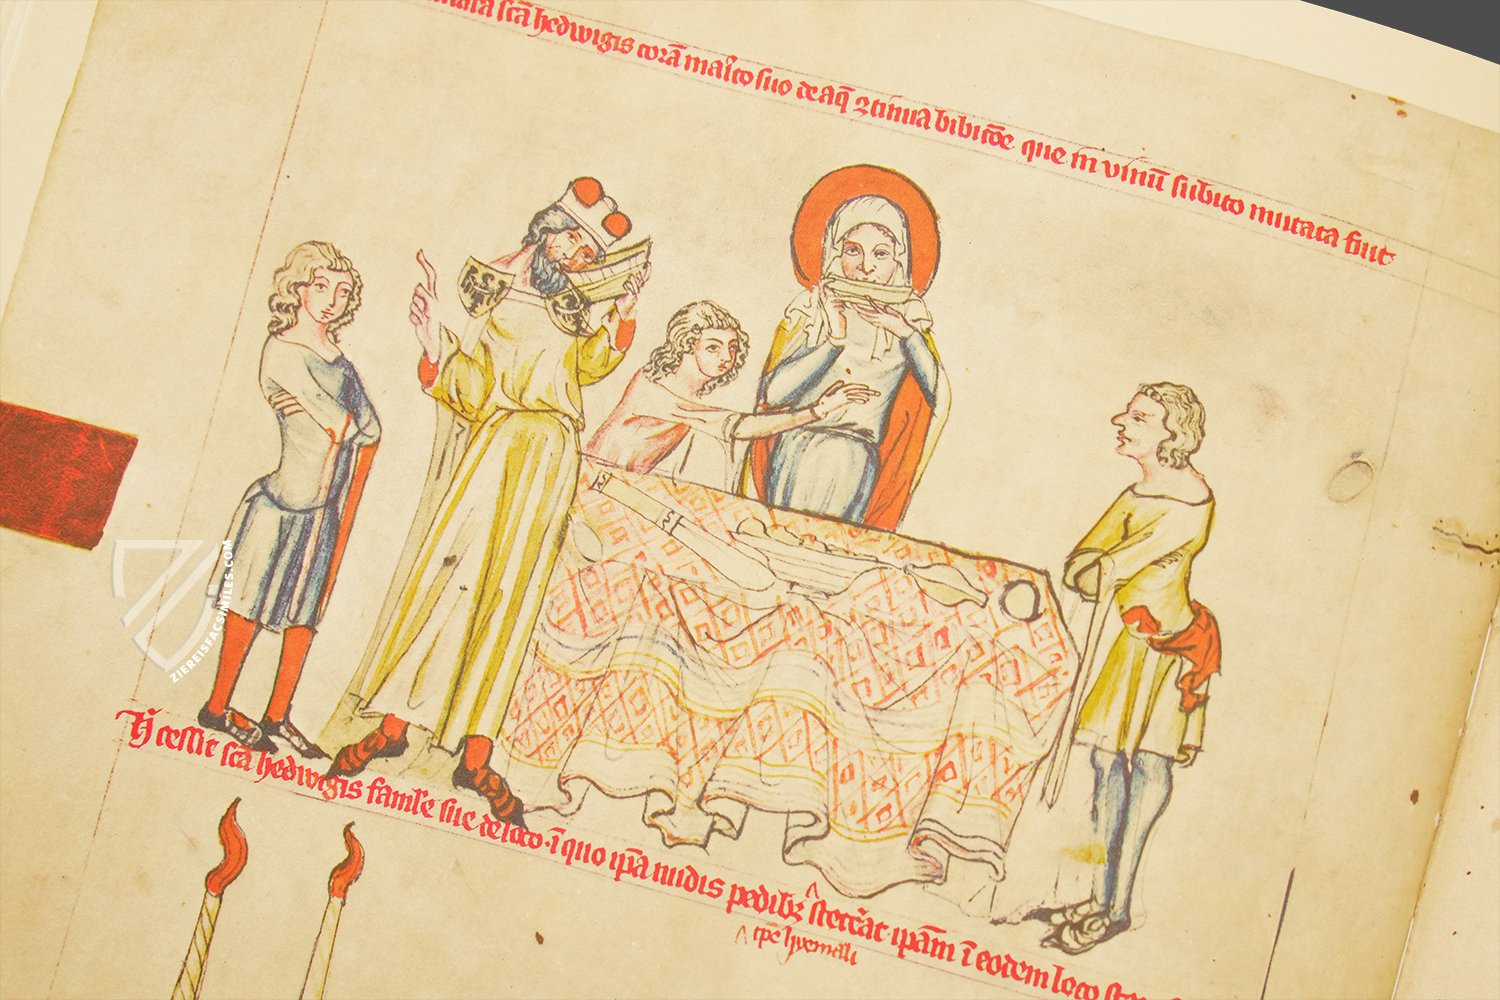 scā hedwigis corā mar̄ito suo de aq̄ ꝯtinua bibitōe que in vinū subito mutata fuit
H̄ cessit scā hedwigis famīle sue de loco · ī quo ip̄a nudis pedibꝫ ^ stet̄at · ip̄am ī eodem loco
^ tp̄e hyemali
ZIEREISFACSIMILES.COM